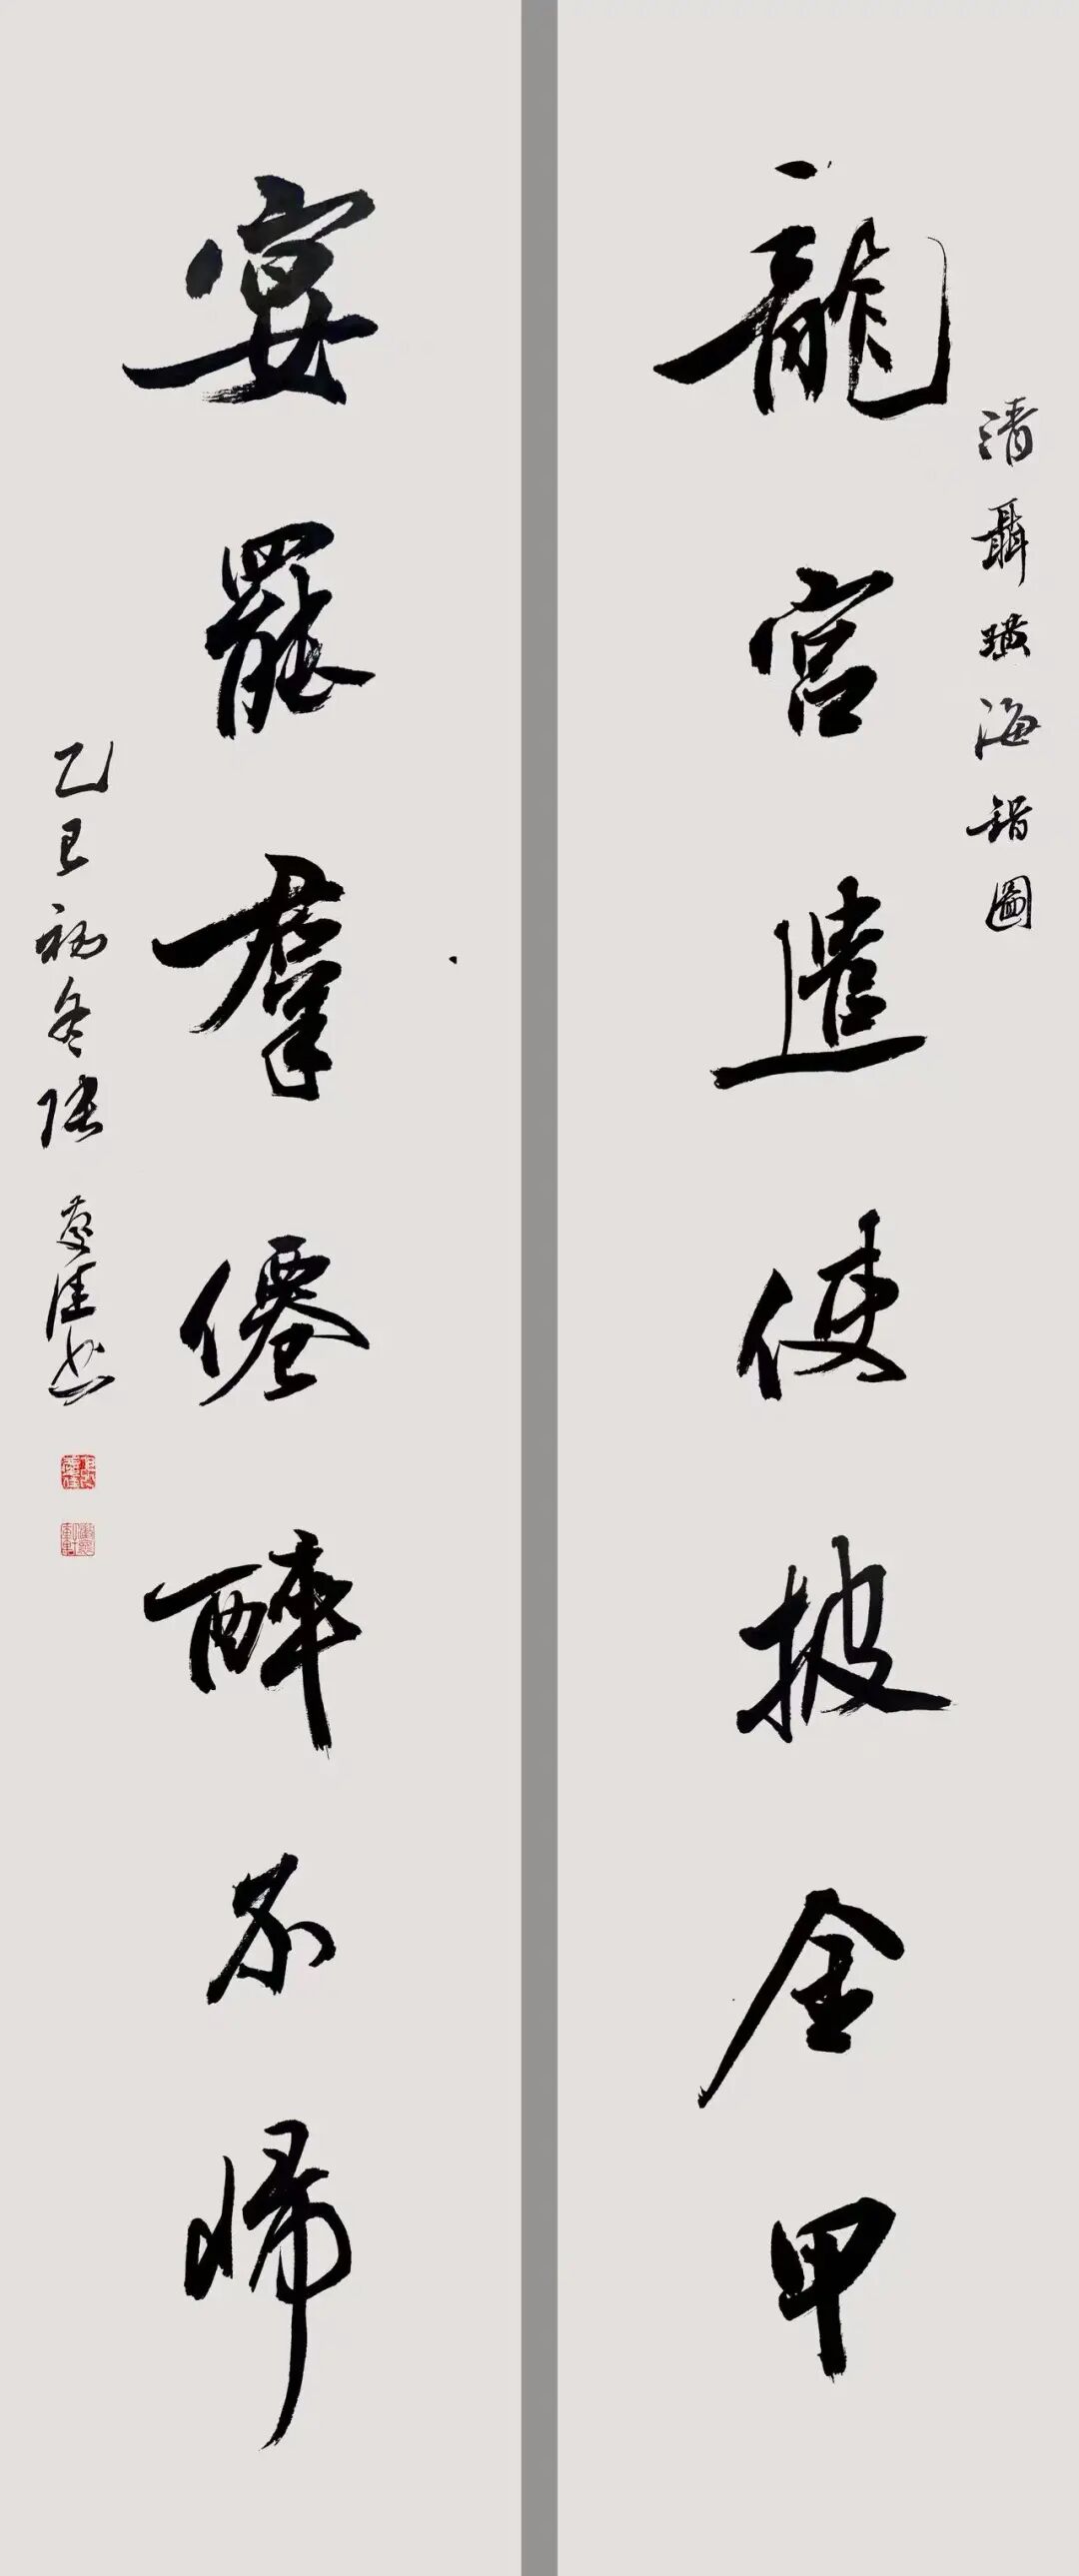 龍宮遣使披金甲
清聶璜海錯圖
宴罷羣僊醉不歸
乙巳初冬張慶佳书